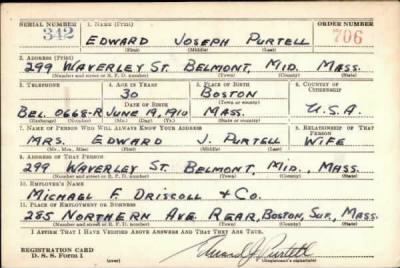 SERIAL NUMBER 1. NAME (Print) ORDER NUMBER
342 EDWARD JOSEPH PURTELL 706
(First) (Middle) (Last)
2. ADDRESS (Print)
299 WAVERLEY ST. BELMONT, MID. MASS.
(Number and street or R. F. D. number) (Town) (County) (State)
3. TELEPHONE 4. AGE IN YEARS 5. PLACE OF BIRTH 6. COUNTRY OF CITIZENSHIP
30 BOSTON
DATE OF BIRTH (Town or county)
BEL. 0668-R JUNE 19, 1910 MASS. U.S.A.
(Exchange) (Number) (Mo.) (Day) (Yr.) (State or country)
7. NAME OF PERSON WHO WILL ALWAYS KNOW YOUR ADDRESS 8. RELATIONSHIP OF THAT PERSON
MRS. EDWARD J. PURTELL WIFE
(Mr., Mrs., Miss) (First) (Middle) (Last)
9. ADDRESS OF THAT PERSON
299 WAVERLEY ST. BELMONT, MID., MASS.
(Number and street or R. F. D. number) (Town) (County) (State)
10. EMPLOYER'S NAME
MICHAEL F. DRISCOLL & CO.
11. PLACE OF EMPLOYMENT OR BUSINESS
285 NORTHERN AVE. REAR, BOSTON, SUF., MASS.
(Number and street or R. F. D. number) (Town) (County) (State)
I AFFIRM THAT I HAVE VERIFIED ABOVE ANSWERS AND THAT THEY ARE TRUE.
REGISTRATION CARD
D. S. S. Form 1 (over) Edward J. Purtell
(Registrant's signature)